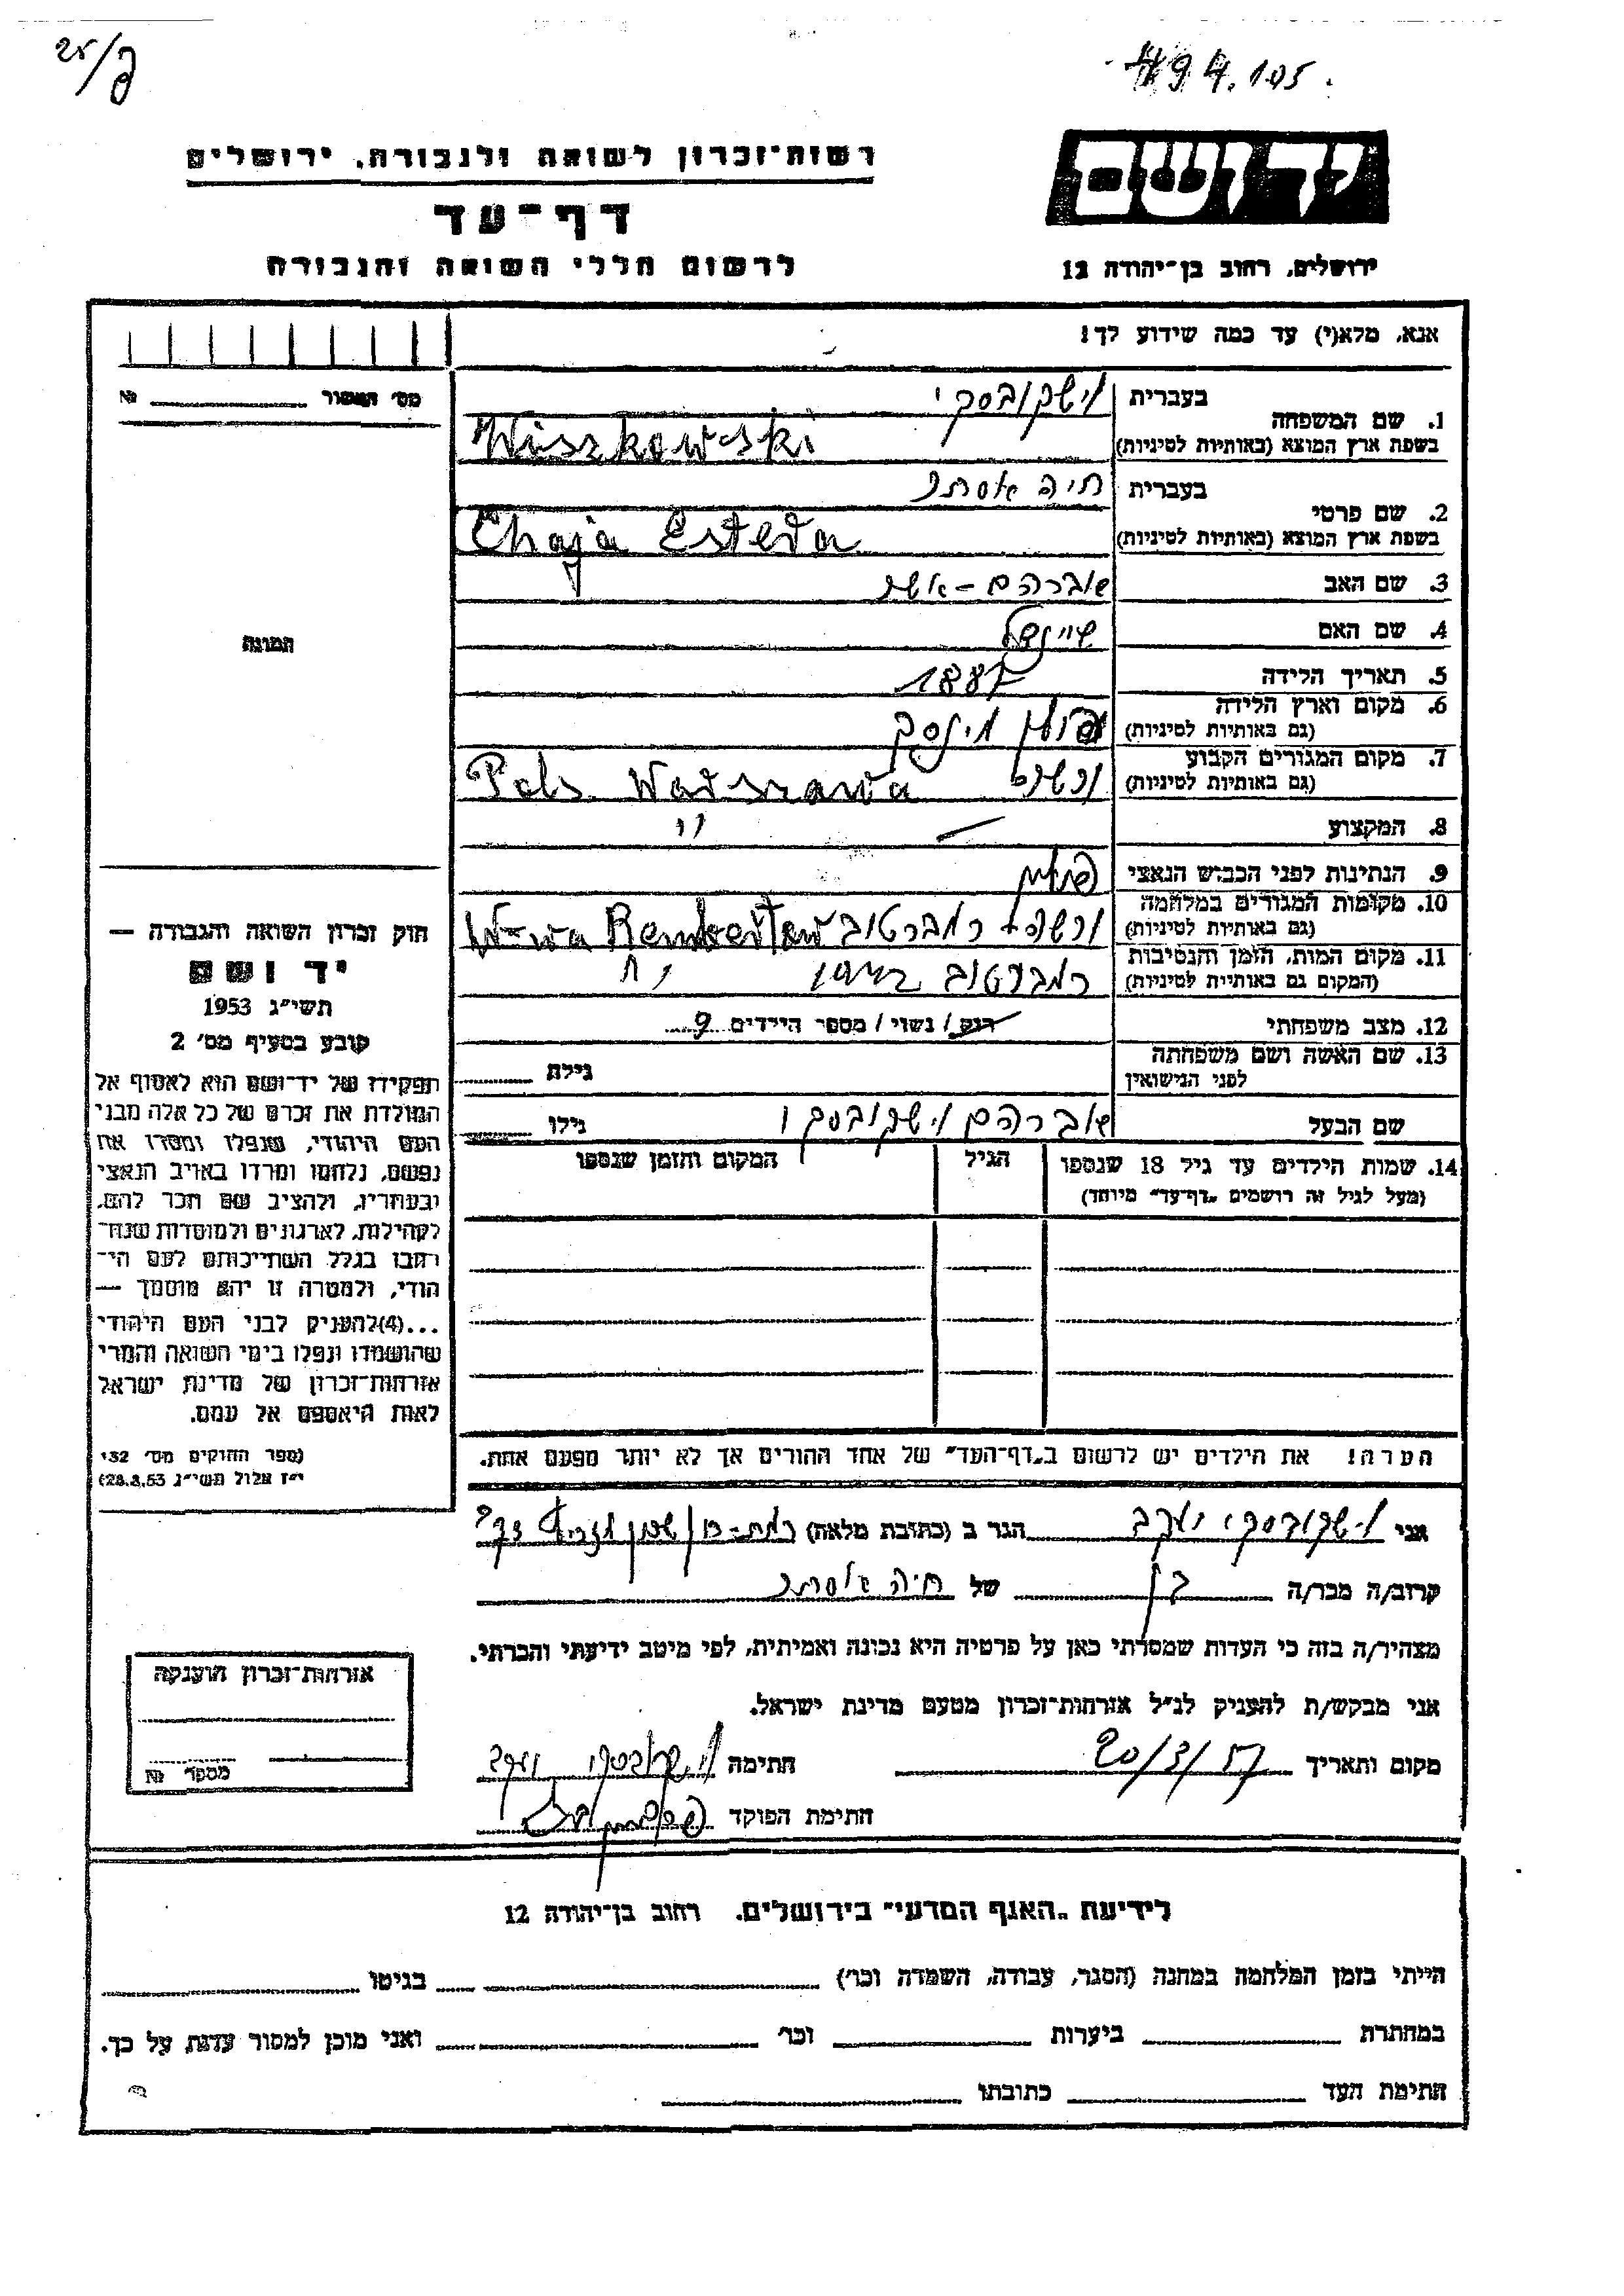 25/
494.105
יד ושם
ירושלים, רחוב בן־יהודה 12
רשות־זכרון לשואה ולגבורה, ירושלים
דף־עד
לרשום חללי השואה והגבורה
אנא, מלא(י) עד כמה שידוע לך!
1. שם המשפחה
בעברית וישקובסקי
בשפת ארץ המוצא (באותיות לטיניות) Wiszkowski
2. שם פרטי
בעברית חיה אסתר
בשפת ארץ המוצא (באותיות לטיניות) Chaja Estera
3. שם האב אברהם - אשר
4. שם האם שיינדל
5. תאריך הלידה 1887
6. מקום וארץ הלידה
(גם באותיות לטיניות) מינסק
7. מקום המגורים הקבוע
(גם באותיות לטיניות) ורשה Pols Warszawa
8. המקצוע —
9. הנתינות לפני הכבוש הנאצי פולין
10. מקומות המגורים במלחמה
(גם באותיות לטיניות) ורשה + רמברטוב W-wa Rembertow
11. מקום המות, הזמן והנסיבות
(המקום גם באותיות לטיניות) רמברטוב 1942
12. מצב משפחתי רווק / נשוי / מספר הילדים 9
13. שם האשה ושם משפחתה
לפני הנישואין גילה
שם הבעל אברהם וישקובסקי גילו
14. שמות הילדים עד גיל 18 שנספו הגיל המקום והזמן שנספו
(מעל לגיל זה רושמים „דף־עד" מיוחד)
הערה! את הילדים יש לרשום ב„דף־העד" של אחד ההורים אך לא יותר מפעם אחת.
מס' המשור №
תמונה
חוק זכרון השואה והגבורה —
יד ושם
תשי"ג 1953
קובע בסעיף מס' 2
תפקידו של יד־ושם הוא לאסוף אל
המולדת את זכרם של כל אלה מבני
העם היהודי, שנפלו ומסרו את
נפשם, נלחמו ומרדו באויב הנאצי
ובעוזריו, ולהציב שם וזכר להם,
לקהילות, לארגונים ולמוסדות שנח־
רבו בגלל השתייכותם לעם הי־
הודי, ולמטרה זו יהא מוסמך —
...(4)להעניק לבני העם היהודי
שהושמדו ונפלו בימי השואה והמרי
אזרחות־זכרון של מדינת ישראל
לאות היאספם אל עמם.
(ספר החוקים מס' 132
י"ז אלול תשי"ג 28.8.53)
אני וישקובסקי יעקב הגר ב (כתובת מלאה) רמת-גן שכון
קרוב/ה מכר/ה בן של חיה אסתר
מצהיר/ה בזה כי העדות שמסרתי כאן על פרטיה היא נכונה ואמיתית, לפי מיטב ידיעתי והכרתי.
אני מבקש/ת להעניק לנ"ל אזרחות־זכרון מטעם מדינת ישראל.
מקום ותאריך 20/3/57 חתימה וישקובסקי יעקב
חתימת הפוקד
אזרחות־זכרון הוענקה
מספר №
לידיעת „האגף המדעי" בירושלים, רחוב בן־יהודה 12
הייתי בזמן המלחמה במחנה (הסגר, עבודה, השמדה וכו') בגיטו
במחתרת ביערות וכו' ואני מוכן למסור עדות על כך.
חתימת העד כתובתו